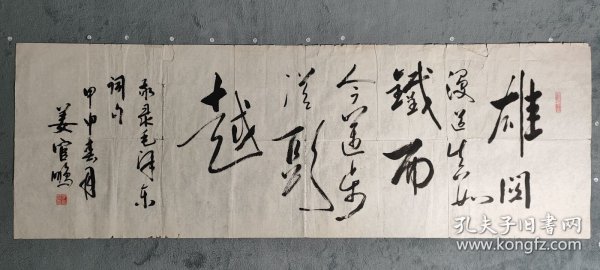 雄关
漫道真如
鐵而
今迈步
從頭
越
录毛泽东
词句
甲申春月
姜
孔夫子旧书网
www.kongfz.com